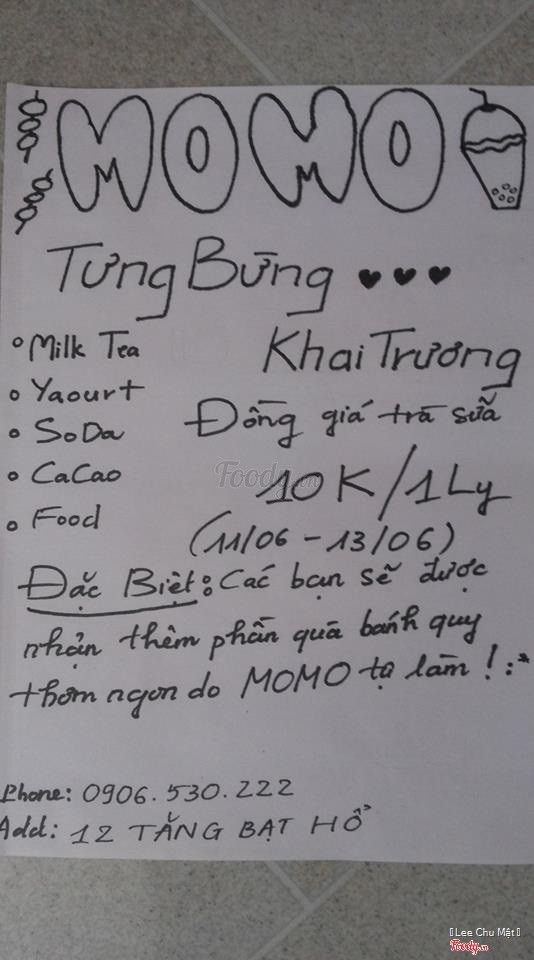 MOMO
Tưng Bừng ♥ ♥ ♥
Khai Trương
• Milk Tea
• Yaourt
• SoDa
• CaCao
• Food
Đồng giá trà sữa
10K/1Ly
(11/06 - 13/06)
Đặc Biệt: Các bạn sẽ được
nhận thêm phần quà bánh quy
thơm ngon do MOMO tự làm! :*
Phone: 0906.530.222
Add: 12 TĂNG BẠT HỔ
Foody.vn
Lee Chu Mật
Foody.vn